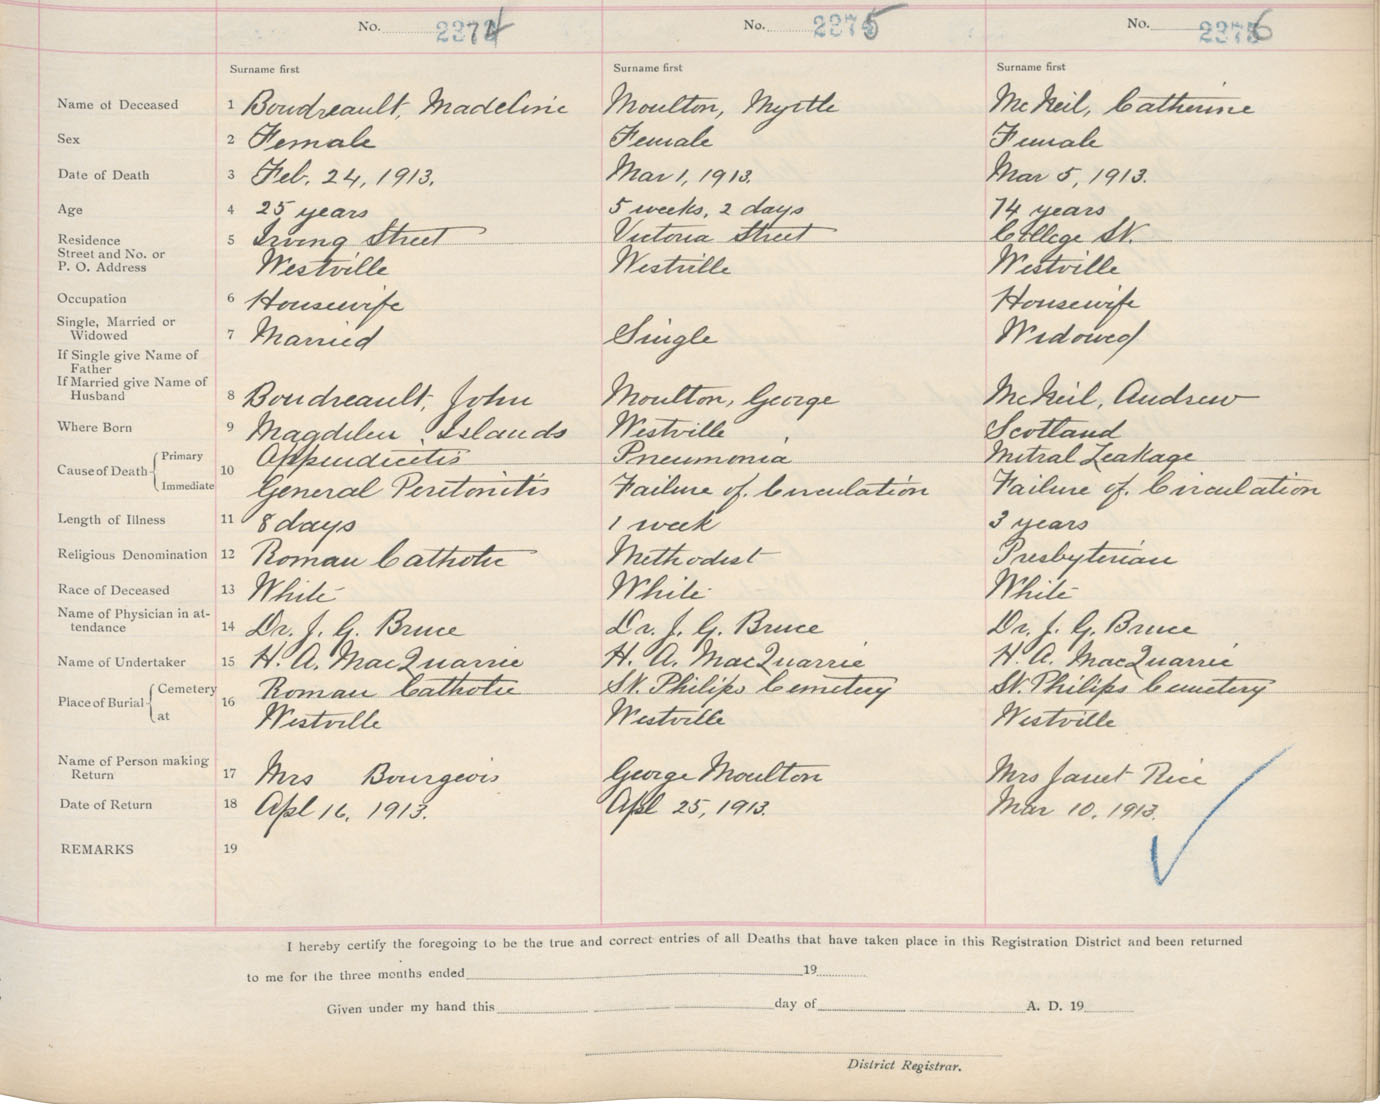 No. 22374 No. 22375 No. 22376
Surname first Surname first Surname first
Name of Deceased 1 Boudreault, Madeline Moulton, Myrtle McNeil, Catherine
Sex 2 Female Female Female
Date of Death 3 Feb. 24, 1913. Mar 1, 1913. Mar 5, 1913.
Age 4 25 years 5 weeks, 2 days 74 years
Residence 5 Irving Street Victoria Street College St.
Street and No. or
P. O. Address Westville Westville Westville
Occupation 6 Housewife Housewife
Single, Married or
Widowed 7 Married Single Widowed
If Single give Name of
Father
If Married give Name of
Husband 8 Boudreault, John Moulton, George McNeil, Andrew
Where Born 9 Magdilen Islands Westville Scotland
Cause of Death Primary 10 Appendicitis Pneumonia Mitral Leakage
Immediate General Peritonitis Failure of Circulation Failure of Circulation
Length of Illness 11 8 days 1 week 3 years
Religious Denomination 12 Roman Catholic Methodist Presbyterian
Race of Deceased 13 White White White
Name of Physician in at-
tendance 14 Dr. J. G. Bruce Dr. J. G. Bruce Dr. J. G. Bruce
Name of Undertaker 15 H. A. MacQuarrie H. A. MacQuarrie H. A. MacQuarrie
Place of Burial Cemetery 16 Roman Catholic St. Philips Cemetery St. Philips Cemetery
at Westville Westville Westville
Name of Person making
Return 17 Mrs Bourgeois George Moulton Mrs Janet Rice
Date of Return 18 Apl 16, 1913. Apl 25, 1913. Mar 10, 1913.
REMARKS 19
I hereby certify the foregoing to be the true and correct entries of all Deaths that have taken place in this Registration District and been returned
to me for the three months ended 19
Given under my hand this day of A. D. 19
District Registrar.